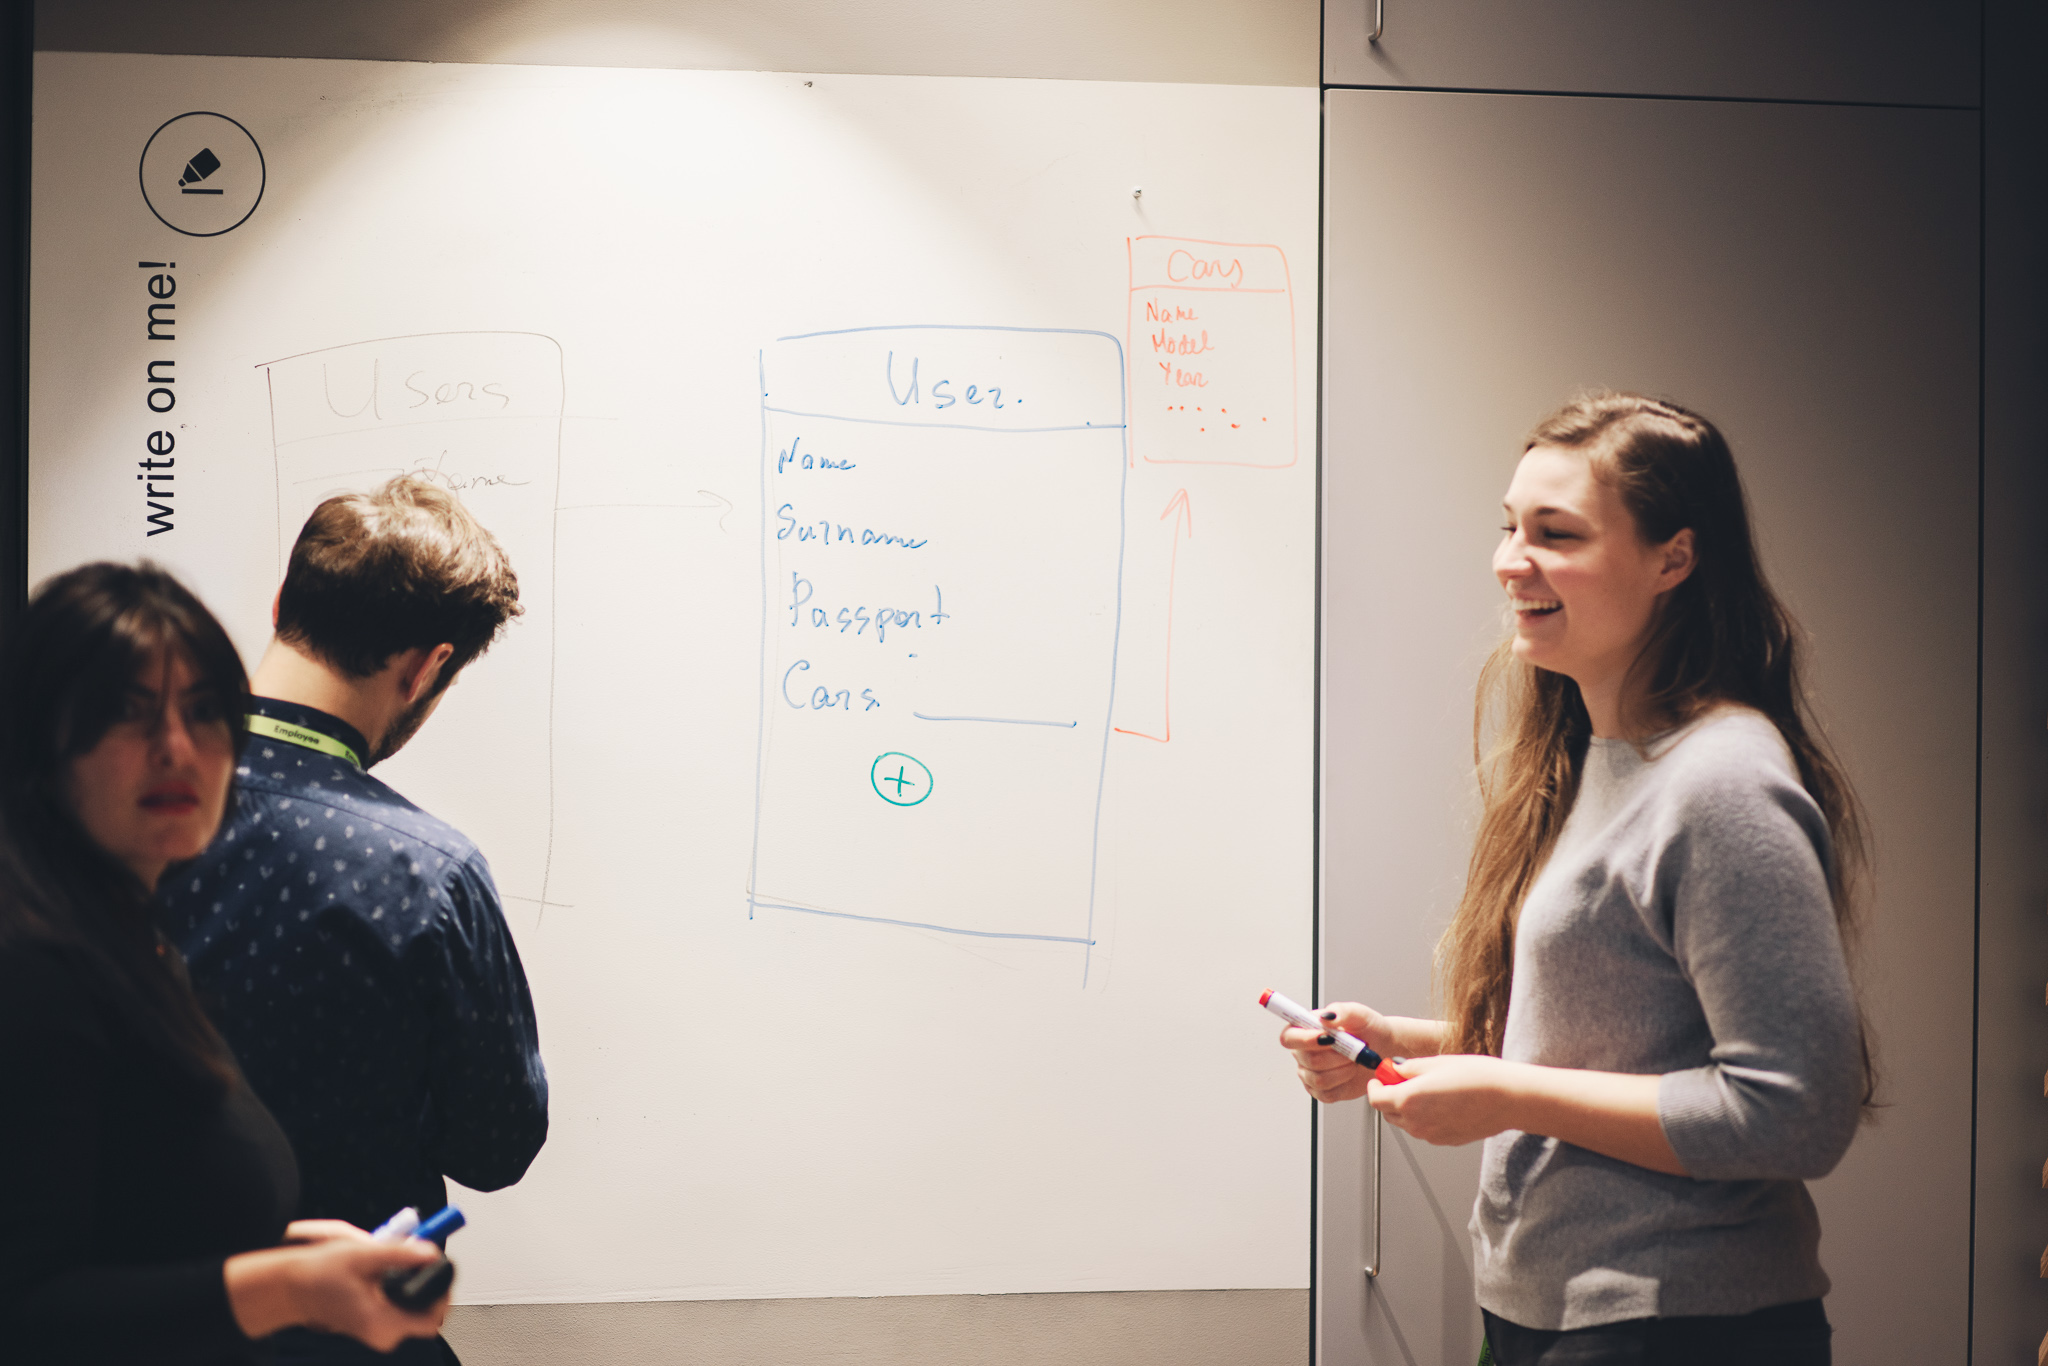 write on me!
Users
Name
User.
Name
Surname
Passport
Cars
+
Cars
Name
Model
Year
Employee